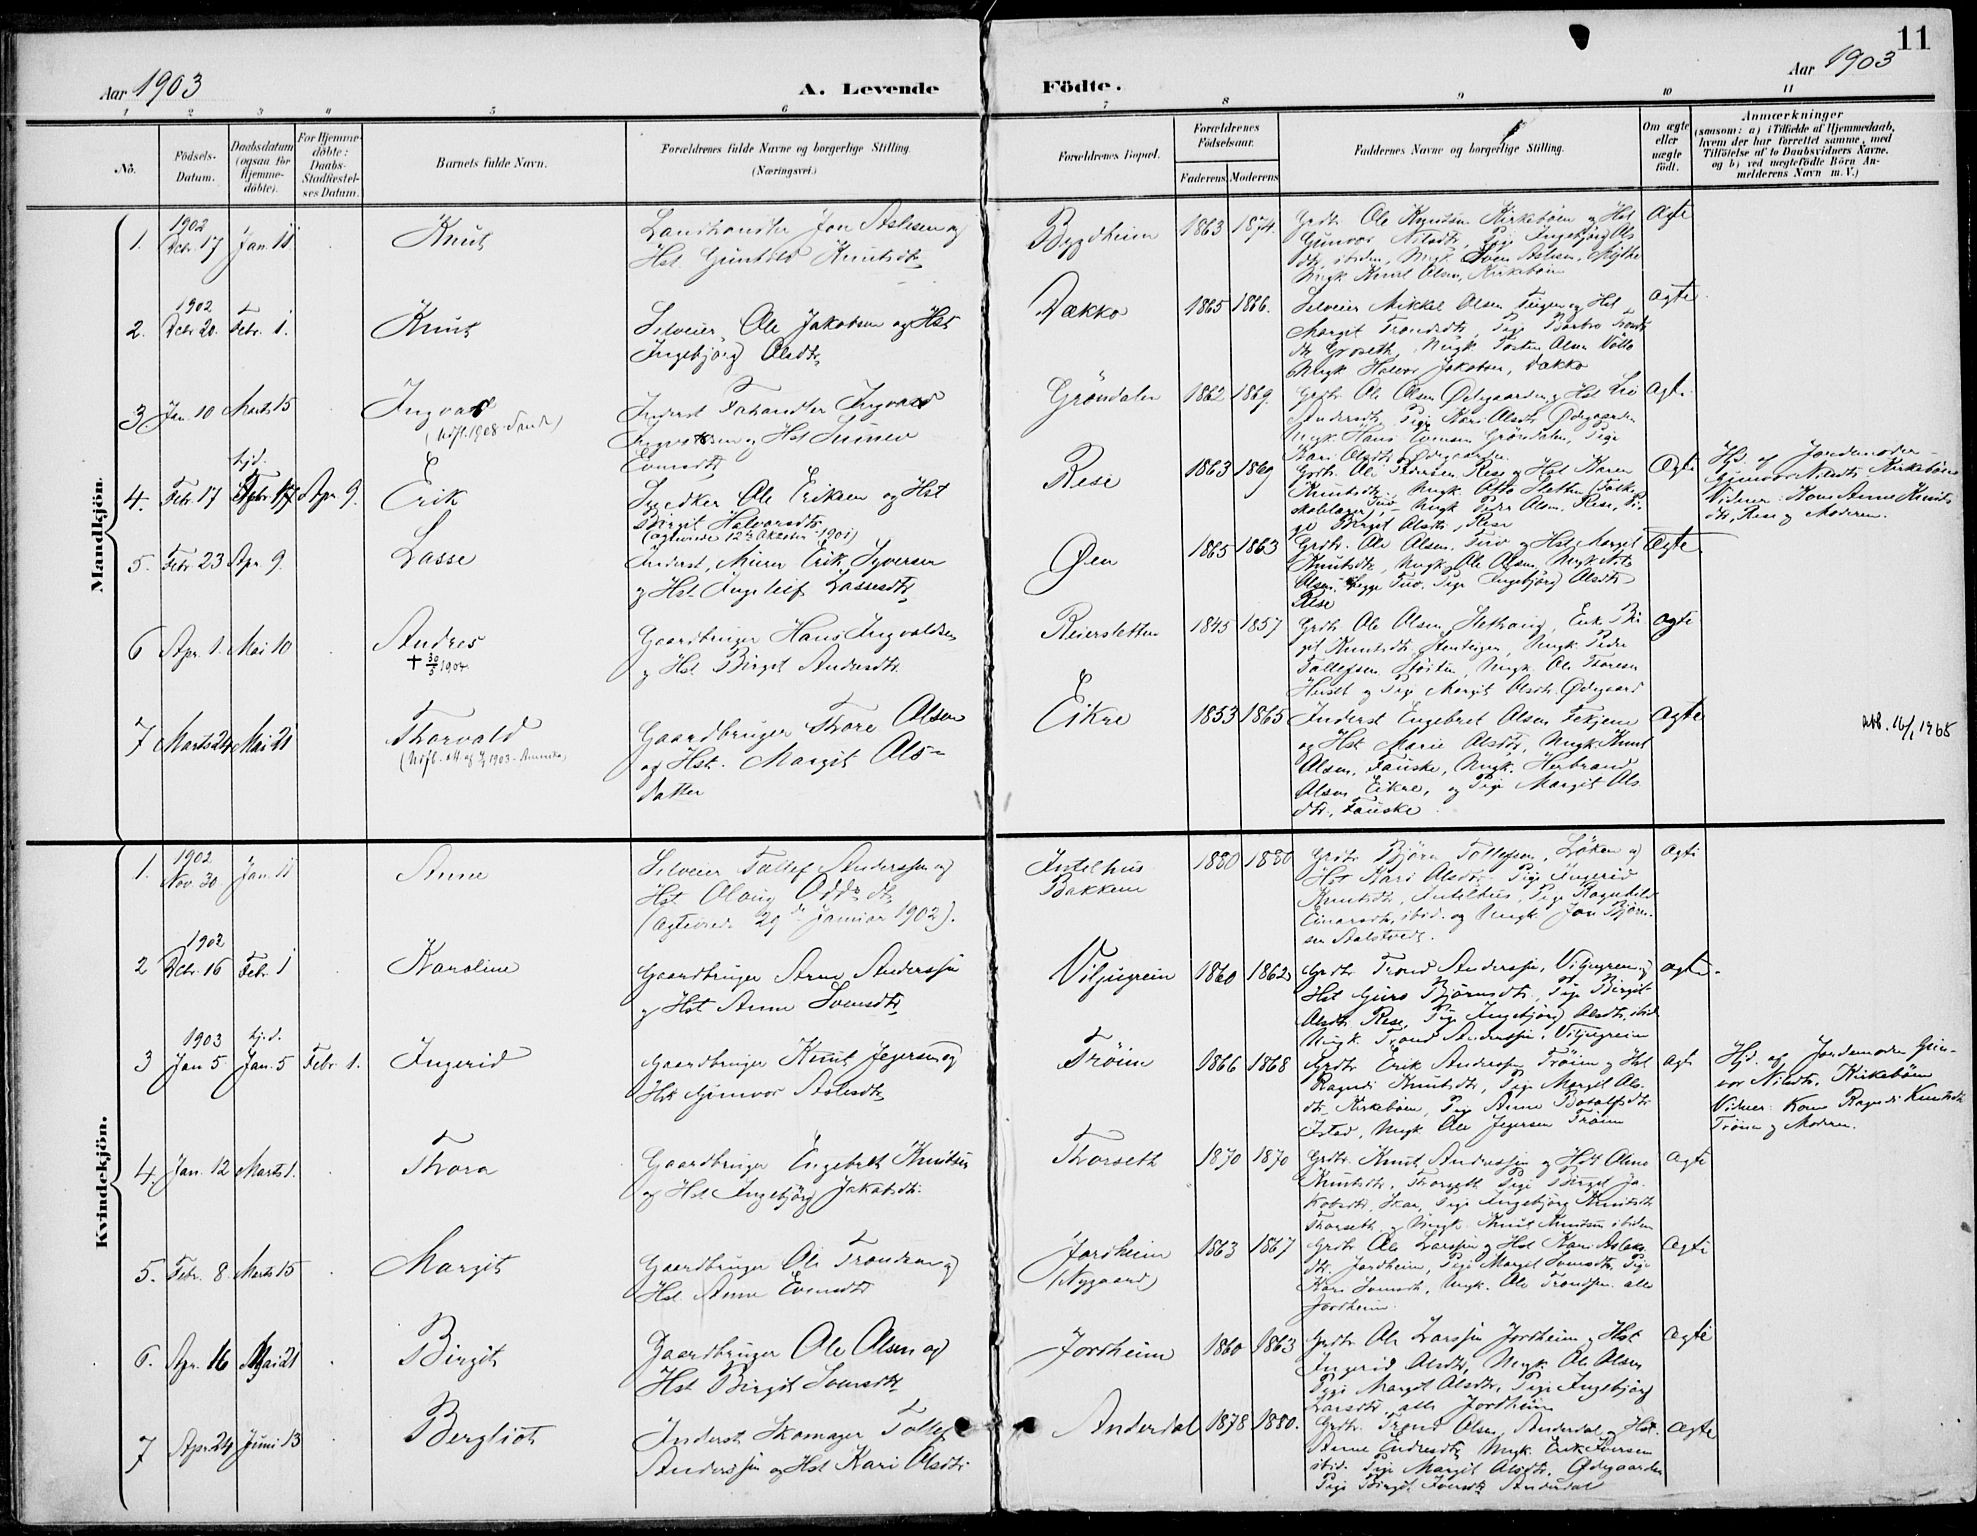 11
Aar 1903
A. Levende
Födte.
Aar 1903
1 2 3 4 5 6 7 8 9 10 11
No.
Födsels-
Datum.
Daabsdatum
(ogsaa for
Hjemme-
döbte).
For Hjemme-
döbte:
Daabs-
Stadfæstel-
ses Datum.
Barnets fulde Navn.
Forældrenes fulde Navne og borgerlige Stilling
(Næringsvei.)
Forældrenes Bopæl.
Forældrenes
Födselsaar.
Faderens. Moderens
Faddernes Navne og borgerlige Stilling.
Om ægte
eller
uægte
födt.
Anmærkninger
(saasom: a) i Tilfælde af Hjemmedaab,
hvem der har forrettet samme, med
Tilföielse af to Daabsvidners Navne.
og b) ved uægtefödte Börn An-
melderens Navn m. V.)
Mandkjön.
1. 1902 Dcbr. 17 Jan. 11 Knut
Landhandler Jon Aslesen og
Hst. Gunhild Knutsdtr
Bygdheim 1863 1874.
Grdbr. Ole Knutsen Kirkebøen og Hst
Gunvor Nilsdtr, Pige Ingebjørg Ols
dtr, ibiden, Ungk. Sven Aslesen,
Ungk Knut Olsen, Kirkebøen
Ægte
2. 1902 Dcbr. 20. Febr. 1. Knut
Selveier Ole Jakobsen og Hst
Ingebjörg Olsdtr
Dokko 1865 1866.
Selveier Mikkel Olsen og Hst
Margit Trondsdtr, Pige Barbro Tronds
dtr Groseth, Ungk. Tosten Olsen
Ungk Halvor Jakobsen, Dokko
Ægte
3 Jan. 10 Marts 15 Ingvald
Inderst Ingvald
og Hst
Grøndalen 1862 1869.
Grdbr. Ole Olsen Ødegaarden og Hst Liv
Andersdtr, Pige Kari Olsdtr Ødegaarden
Ungk. Hans Evensen Grøndalen, Pige
Kari Olsdtr Ødegaarden
Ægte
4. Febr. 17 hjd. Febr. 17 Apr. 9. Erik
Snedker Ole Eriksen og Hst
Birgit Halvorsdtr
(ægteviede 12te Oktober 1901)
Rese 1863 1869
Grdbr. Ole Pedersen Rese og Hst Karen
Knutsdtr, Ungk. Otto Sletten (Folke
skolelærer), Ungk Peder Olsen, Rese, Pi-
ge Birgit Olsdtr, Rese
Ægte
Hjd. af Jordemoder
Gunvor Nilsdtr Kirkebøen
Vidner: Kone Anne Knuts
dtr, Rese og Moderen.
5. Febr. 23 Apr. 9. Lasse
Inderst, Murer Erik Syversen
og Hst. Ingeleif Lassesdtr
Øen 1865 1863
Grdbr. Ole Olsen, Tuv og Hst Margit
Knutsdtr, Ungk Ole Olsen, Ungk Nils
Olsen, begge Tuv. Pige Ingebjörg Olsdtr
Rese
Ægte
6 Apr. 1. Mai 10 Andres
† 30/3 1904
Gaardbruger Hans Ingvaldsen
og Hst Birgit Andersdtr
Reiersletten 1845 1857
Grdbr Ole Olsen, Enke Bir
git Knutsdtr, Ungk. Peder
Tollefsen, Ungk. Ole Toresen
Huset og Pige Margit Olsdtr. Ødegaard
Ægte
7 Marts 24 Mai 21 Thorvald
Gaardbruger Thore Olsen
og Hst. Margit Ols-
datter
Eikre 1853 1865
Inderst Engebret Olsen
og Hst Marie Olsdtr, Ungk Knut
Olsen, Fauske, Ungk. Herbrand
Olsen Eikre, og Pige Margit Ols
dtr, Fauske
Ægte
Kvindekjön.
1. 1902 Nov. 30 Jan. 11 Anne
Selveier Tollef Anderssen og
Hst Olaug Oddsdtr
(Ægteviede 29de Januar 1902).
Intelhus
Bakken 1880 1880
Grdbr Bjørn Tollefsen, Løken og
Hst Kari Olsdtr. Pige Ingerid
Knutsdtr, Intelhus, Pige Ragnhild
Einarsdtr, ibid. og Ungk Jon Bjørn
sen
Ægte
2 1902 Dcbr. 16 Febr. 1 Karoline
Gaardbruger Arne Anderssen
og Hst Anne Svensdtr
Viljugrein 1860 1862
Grdbr Trond Anderssen, Viljugrein og
Hst Guro Bjørnsdtr, Pige Birgit
Olsdtr Rese, Pige Ingebjörg Olsdtr, ibid
Ungk. Trond Anderssen, Viljugrein
Ægte.
3 1903 Jan 5 hjd. Jan. 5 Febr. 1. Ingerid
Gaardbruger Knut Jegersen og
Hst Gunvor Aslesdtr
Trøim 1866 1868
Grdbr Erik Anderssen Trøim og Hst
Ragndi Knutsdtr, Pige Margit Ols
dtr Kirkebøen, Pige Anne Botolfsdtr
Istad, Ungk Ole Jegersen Trøim
Ægte
Hjd. af Jordemoder Gun-
vor Nilsdtr, Kirkebøen
Vidner: Kone Ragndi Knutsdtr
Trøim og Moderen.
4. Jan. 12 Marts 1. Thora
Gaardbruger Engebret Knutsen
og Hst Ingebjörg Jakobsdtr.
Thorseth 1870 1870
Grdbr. Knut Anderssen og Hst
Knutsdtr, Thorseth Pige Birgit Ja-
kobsdtr, Skar, Pige Ingebjörg Knutsdtr
Thorseth og Ungk. Knut Knutsen ibiden
Ægte
5. Febr. 8. Marts 15 Margit
Gaardbruger Ole Trondsen og
Hst. Anne Evensdtr
Jordheim
(Nygaard) 1863 1867
Grdbr Ole Larssen og Hst Kari Aslaks
dtr. Jordheim, Pige Margit Svensdtr, Pige
Kari Svensdtr, Ungk. Ole Trondssen. alle
Jordheim.
Ægte
6. Apr. 16 Mai 21 Birgit
Gaardbruger Ole Olsen og
Hst Birgit Svensdtr
Jordheim 1860 1863
Grdbr Ole Larssen Jordheim og Hst
Ingerid Olsdtr, Ungk. Ole Olsen
Pige Margit Olsdtr, Pige Ingebjörg
Larsdtr, alle Jordheim
Ægte
7 Apr. 24 Juni 13 Bergliot
Inderst Skomager Tollef
Anderssen og Hst Kari Olsdtr
Anderdal 1878 1880.
Grdbr. Trond Olsen, Anderdal og Hst.
Anne Endresdtr, Ungk. Erik Iversen
ibid. Pige Margit Olsdtr. Ødegaarden
Pige Birgit Iversdtr Anderdal
Ægte